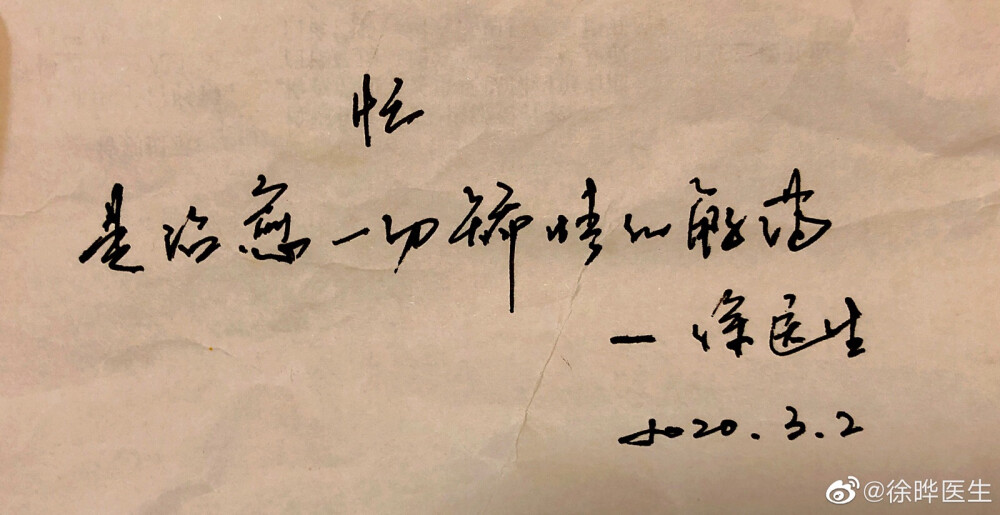 忙
是治愈一切矫情的解药
—徐医生
2020.3.2
@徐晔医生